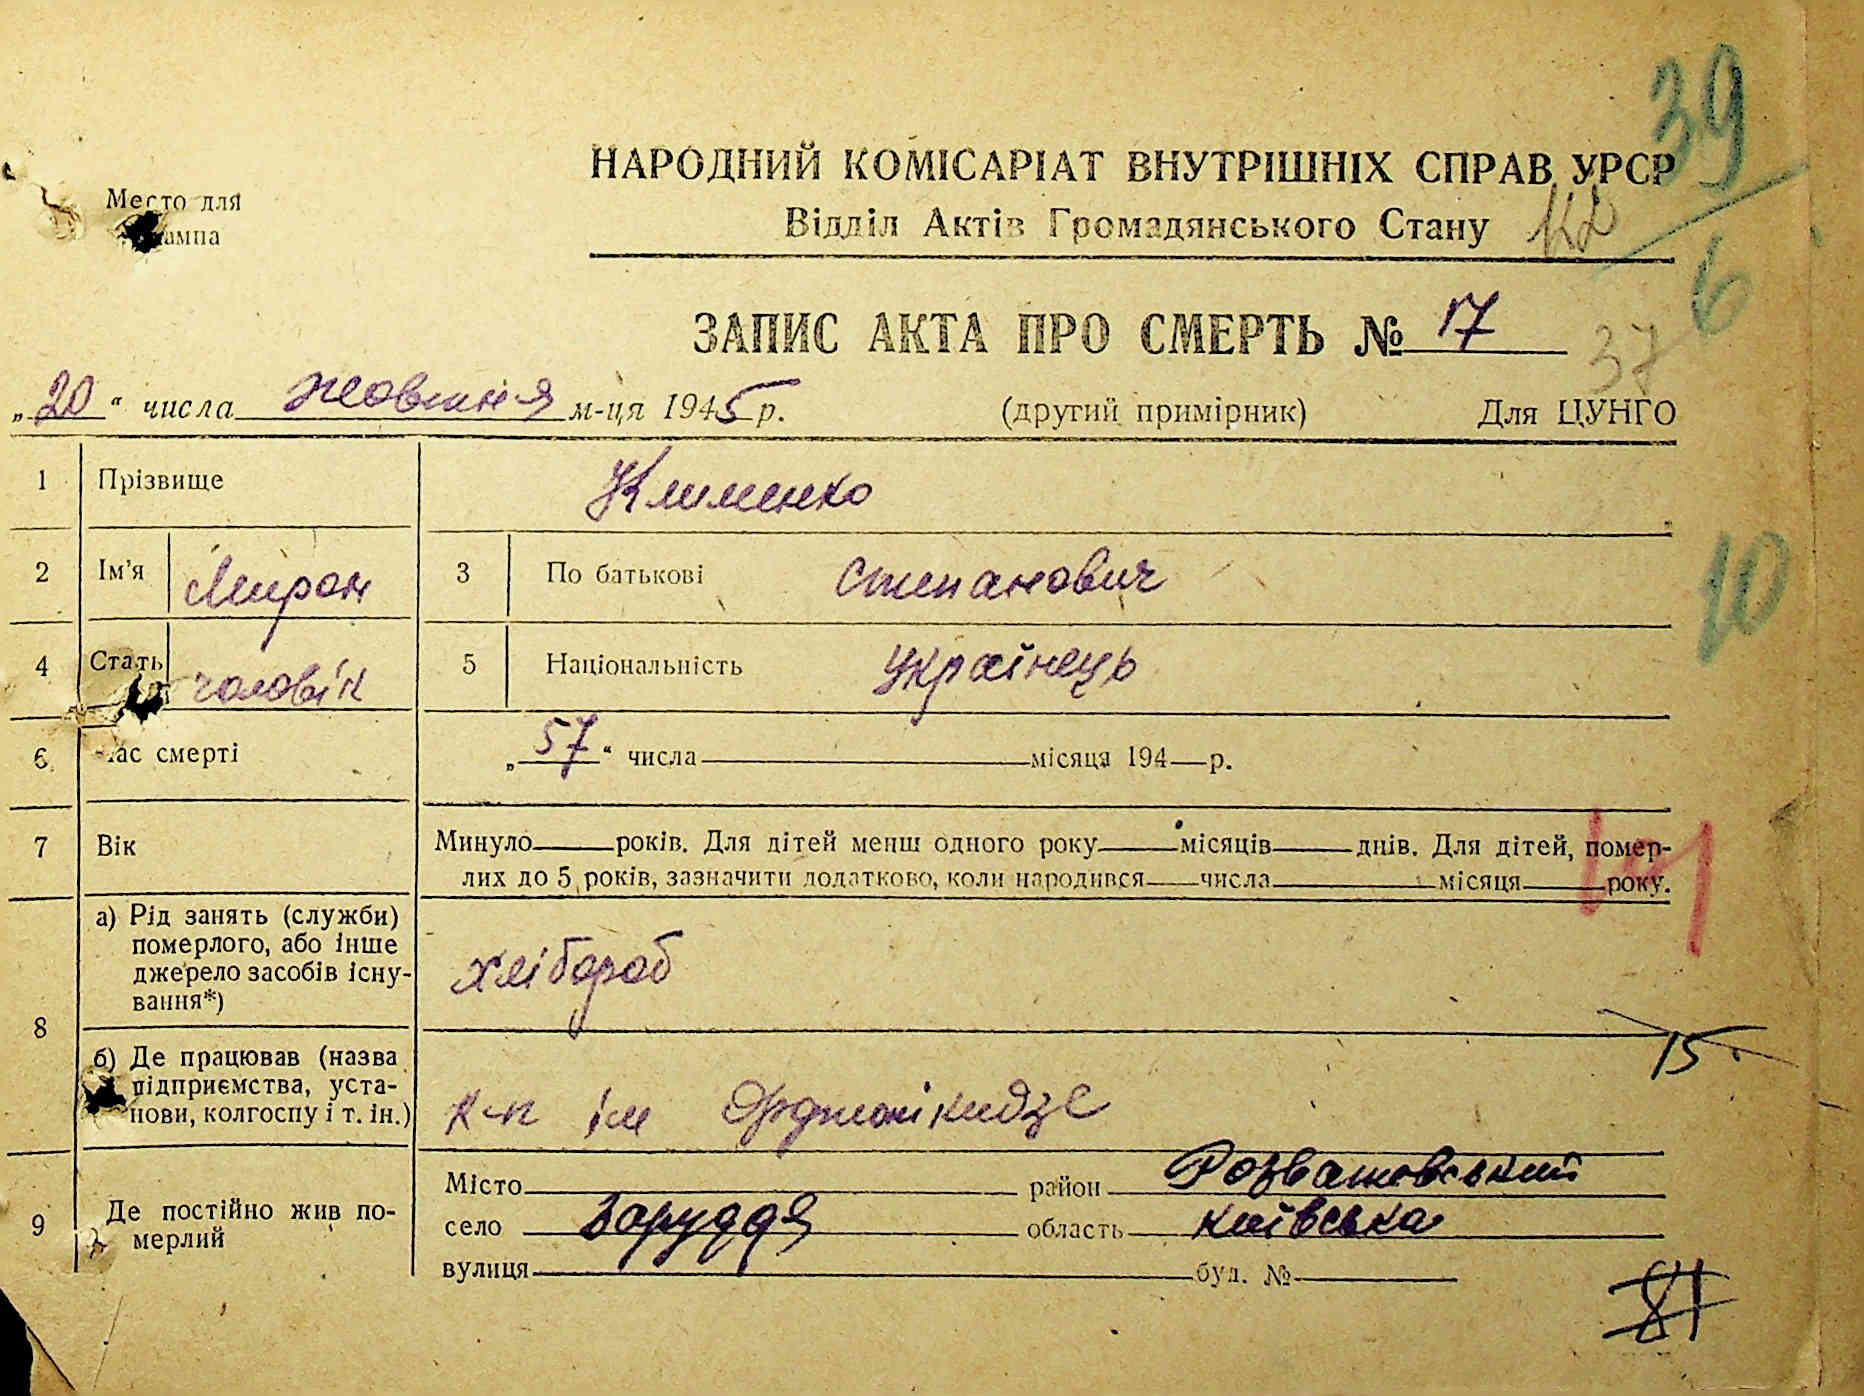 39
6
Место для
НАРОДНИЙ КОМІСАРІАТ ВНУТРІШНІХ СПРАВ УРСР
Відділ Актів Громадянського Стану
ЗАПИС АКТА ПРО СМЕРТЬ № 17
37
„20“ числа жовтня м-ця 1945 р. (другий примірник) Для ЦУНГО
1 Прізвище Клименко
2 Ім'я Мирон 3 По батькові Степанович
10
4 Стать чоловік 5 Національність Українець
6 Час смерті „57“ числа місяця 194 р.
7 Вік Минуло років. Для дітей менш одного року місяців днів. Для дітей, помер-
лих до 5 років, зазначити додатково, коли народився числа місяця року.
8 а) Рід занять (служби)
померлого, або інше
джерело засобів існу-
вання*)
хлібороб
15
б) Де працював (назва
підприємства, уста-
нови, колгоспу і т. ін.)
к-п ім Орджонікидзе
9 Де постійно жив по-
мерлий
Місто район Розважовський
село Заруддя область Київська
вулиця буд. №
81